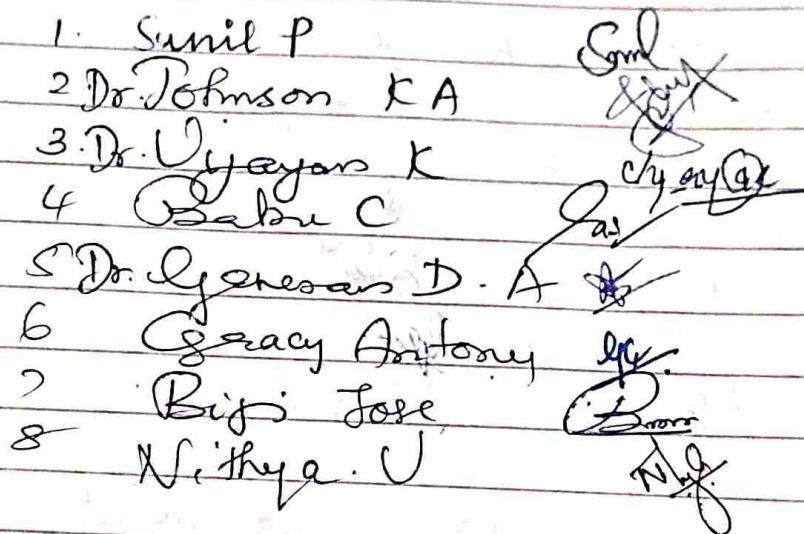 1. Sunil P
2 Dr. Johnson K A
3. Dr. Vijayan K
4 Babu C
5 Dr. Genesan D. A
6 Gracy Antony
7 Biji Jose
8 Nithya. U